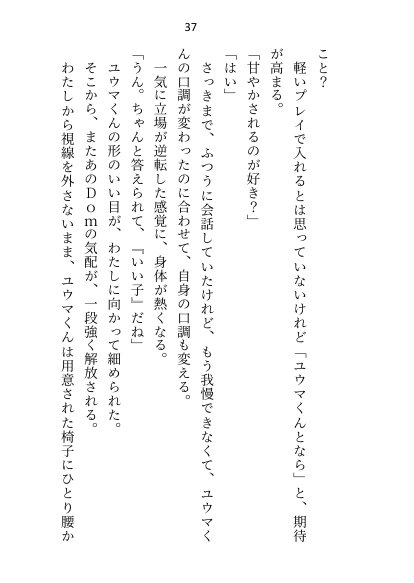 37
こと？
　軽いプレイで入れるとは思っていないけれど「ユウマくんとなら」と、期待
が高まる。
「甘やかされるのが好き？」
「はい」
　さっきまで、ふつうに会話していたけれど、もう我慢できなくて、ユウマく
んの口調が変わったのに合わせて、自身の口調も変える。
　一気に立場が逆転した感覚に、身体が熱くなる。
「うん。ちゃんと答えられて、『いい子』だね」
　ユウマくんの形のいい目が、わたしに向かって細められた。
　そこから、またあのDomの気配が、一段強く解放される。
　わたしから視線を外さないまま、ユウマくんは用意された椅子にひとり腰か